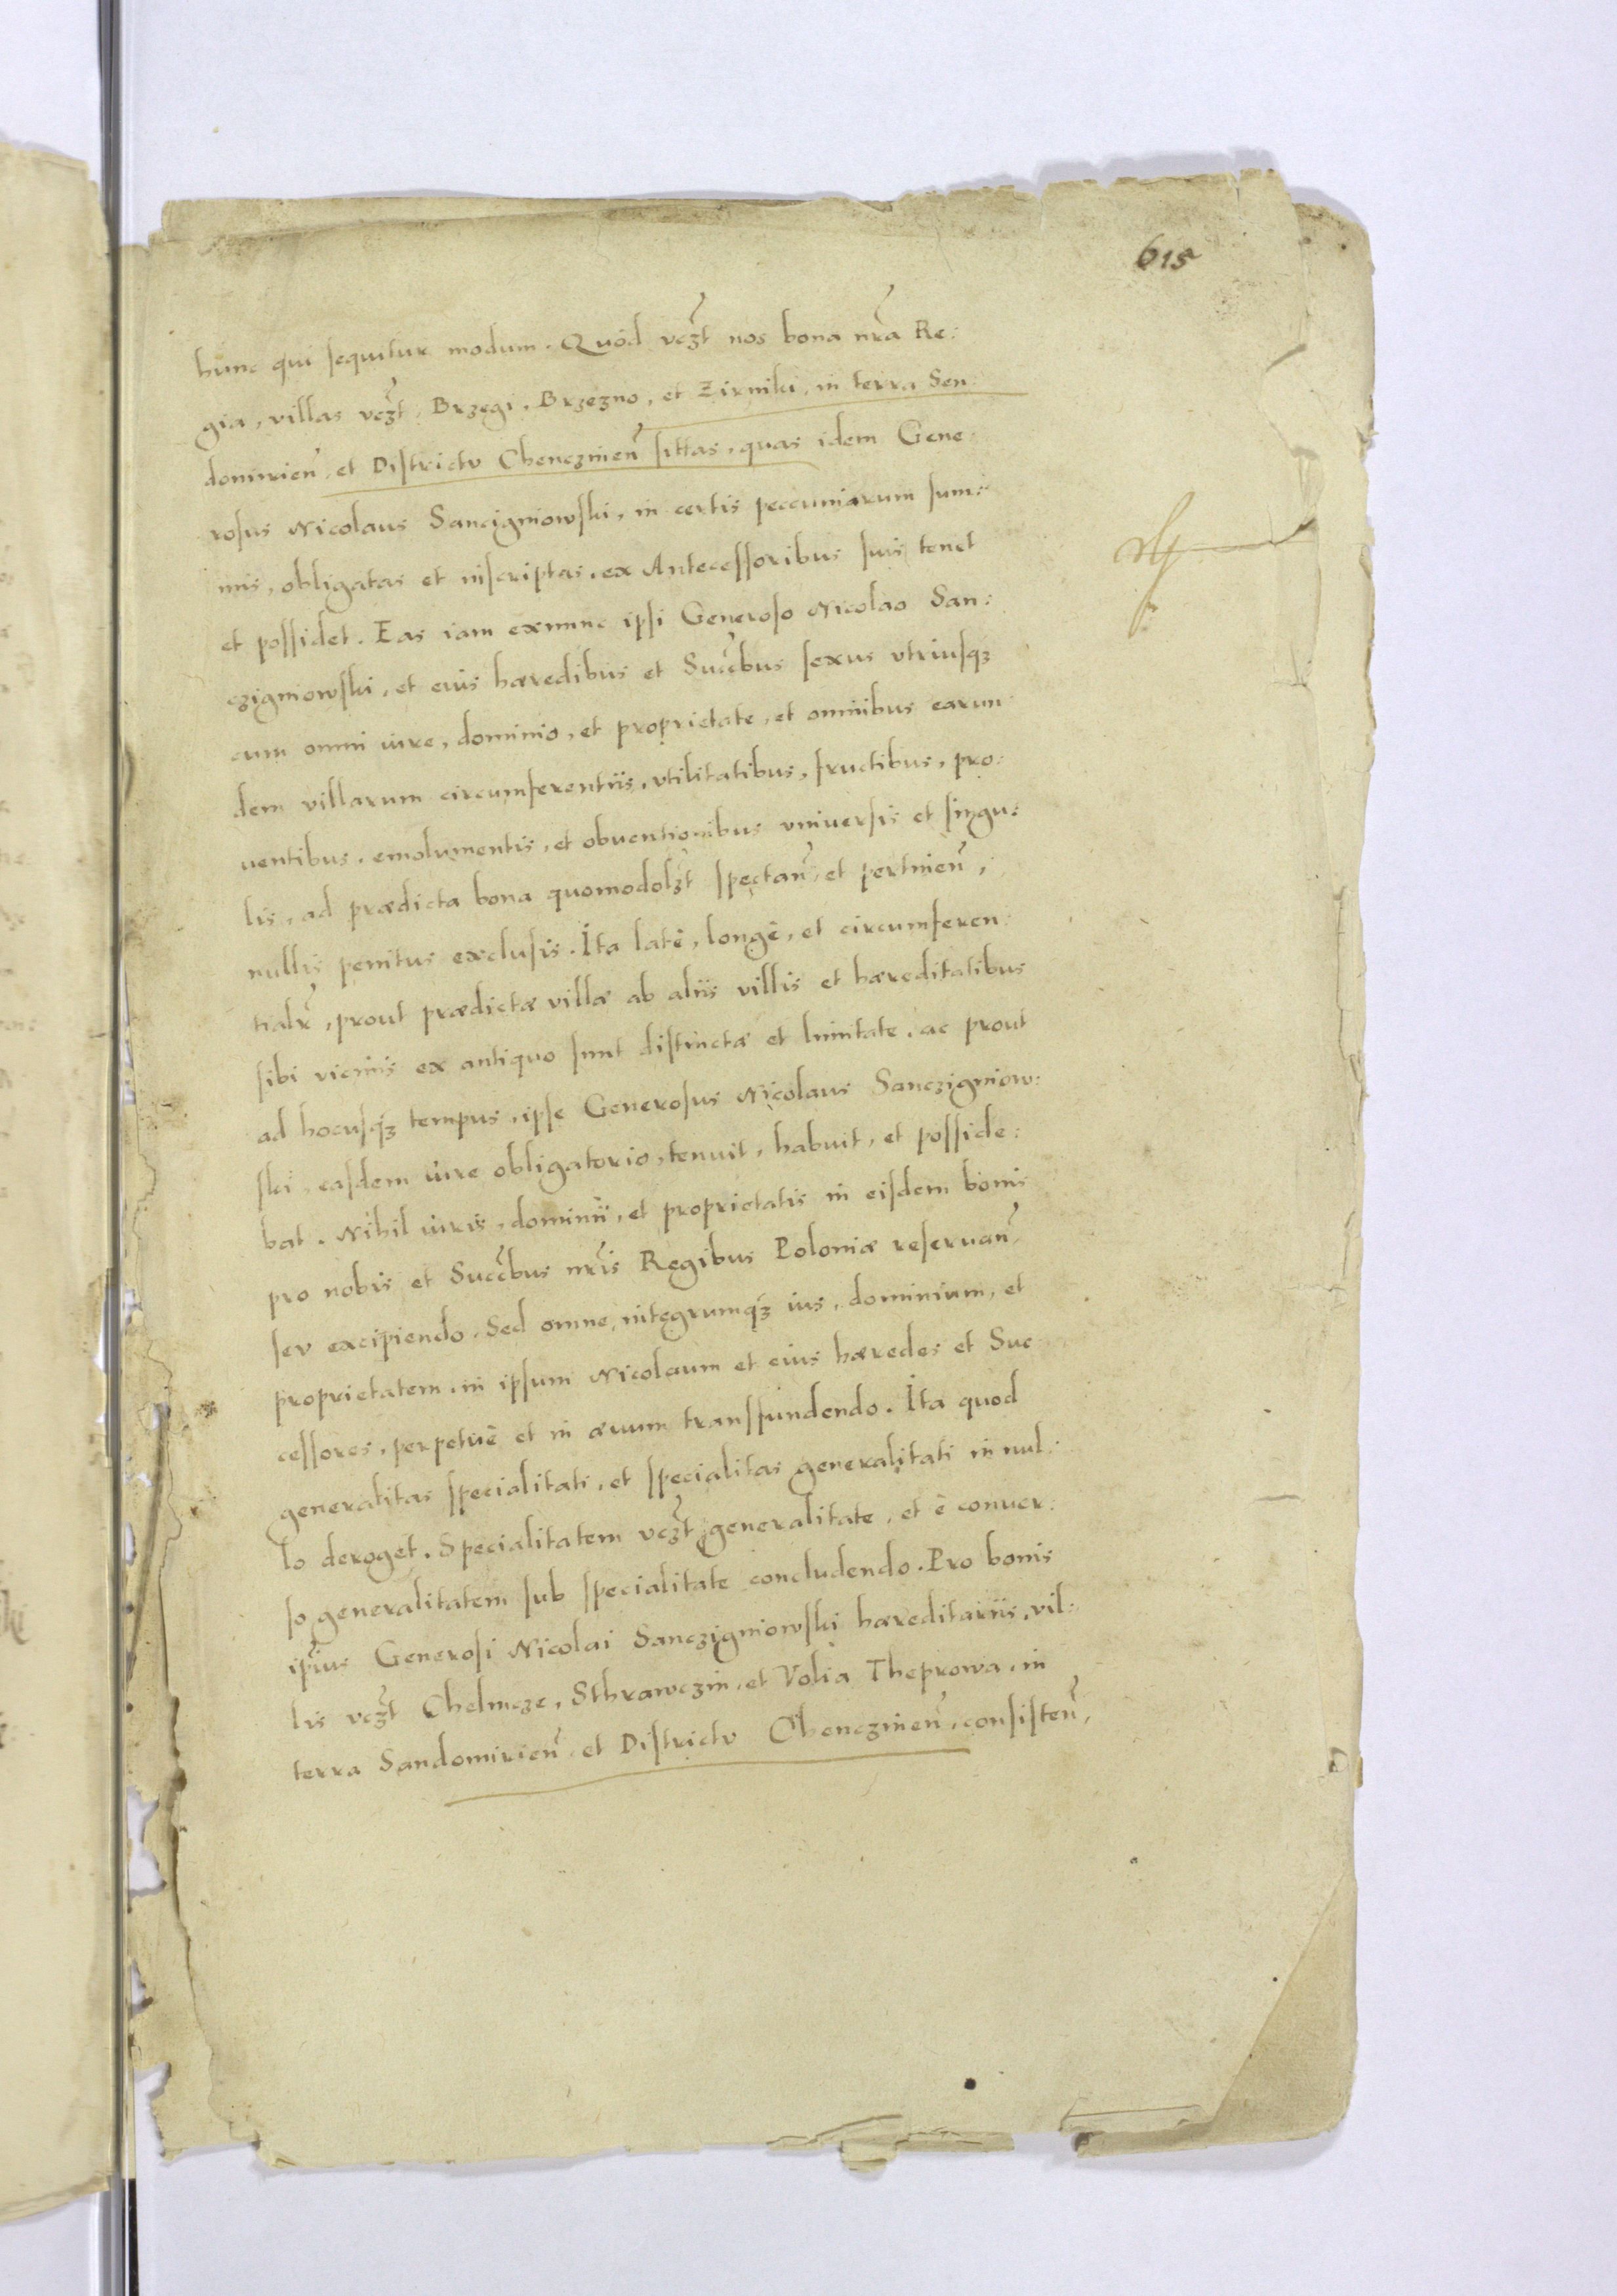 615
hunc qui sequitur modum. Quòd vczt nos bona nra Re:
gia, villas vczt, Brzegi, Brzezno, et Zirniki, in terra Sen:
domirien, et Districtu Chenczinen sittas, quas idem Gene:
rosus Nicolaus Sancigniowski, in certis peccuniarum sum:
mis, obligatas et inscriptas, ex Antecessoribus suis tenet
et possidet. Eas iam exnunc ipsi Generoso Nicolao San:
czigniowski, et eius hæredibus et Succbus sexus vtriusqz
cum omni iure, dominio, et proprietate, et omnibus earun:
dem villarum circumferentiis, vtilitatibus, fructibus, pro:
uentibus, emolumentis, et obuentionibus vniuersis et singu:
lis, ad prædicta bona quomodolzt spectan, et pertinen,
nullis penitus exclusis. Ita latè, longè, et circumferen:
tialr, prout prædictæ villæ ab aliis villis et hæreditatibus
sibi vicinis ex antiquo sunt distinctæ et limitatę, ac prout
ad hocusqz tempus, ipse Generosus Nicolaus Sanczigniow:
ski, easdem iure obligatorio, tenuit, habuit, et posside:
bat. Nihil iuris, dominii, et proprietatis in eisdem bonis
pro nobis et Succbus nris Regibus Poloniæ reseruan,
seu excipiendo. Sed omne, integrumqz ius, dominium, et
proprietatem, in ipsum Nicolaum et eius hæredes et Suc
cessores, perpetuè et in æuum transfundendo. Ita quod
generalitas specialitati, et specialitas generalitati in nul:
lo deroget. Specialitatem vczt generalitate, et è conuer:
so generalitatem sub specialitate concludendo. Pro bonis
ipius Generosi Nicolai Sanczigniowski hæreditariis, vil:
lis vczt Chelmcze, Sthrawczin, et Volia Theprowa, in
terra Sandomirien, et Districtu Chenczinen, consisten,